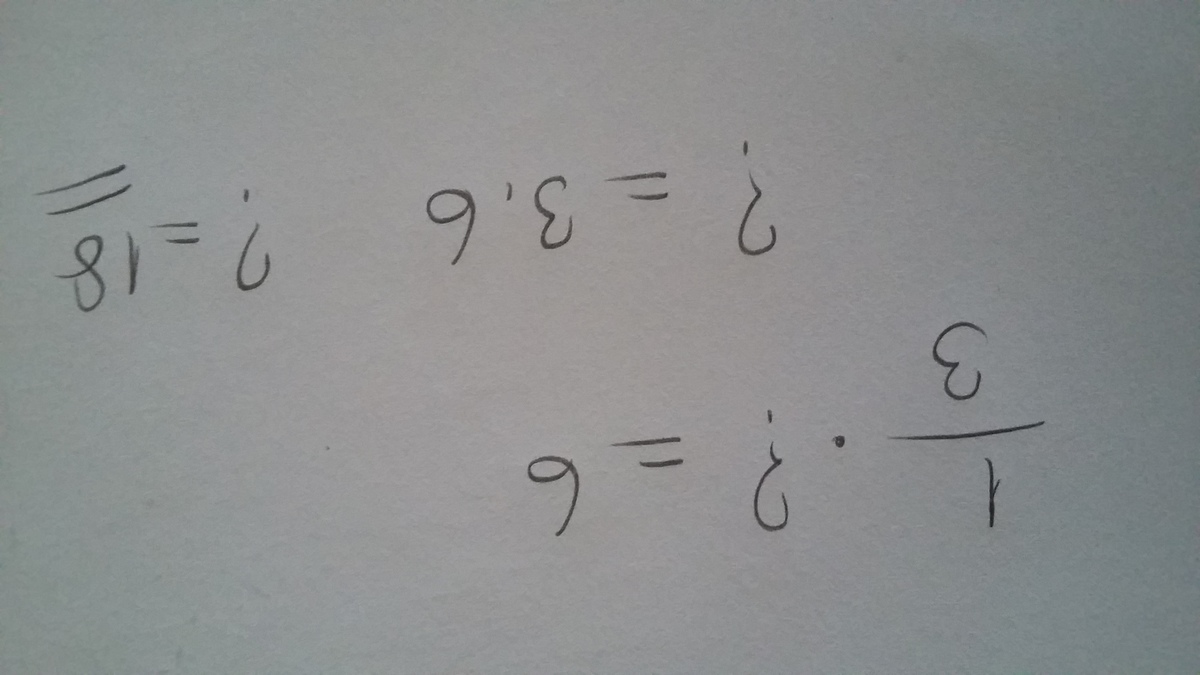 1/3 · ? = 6
? = 3 · 6 ? = 18